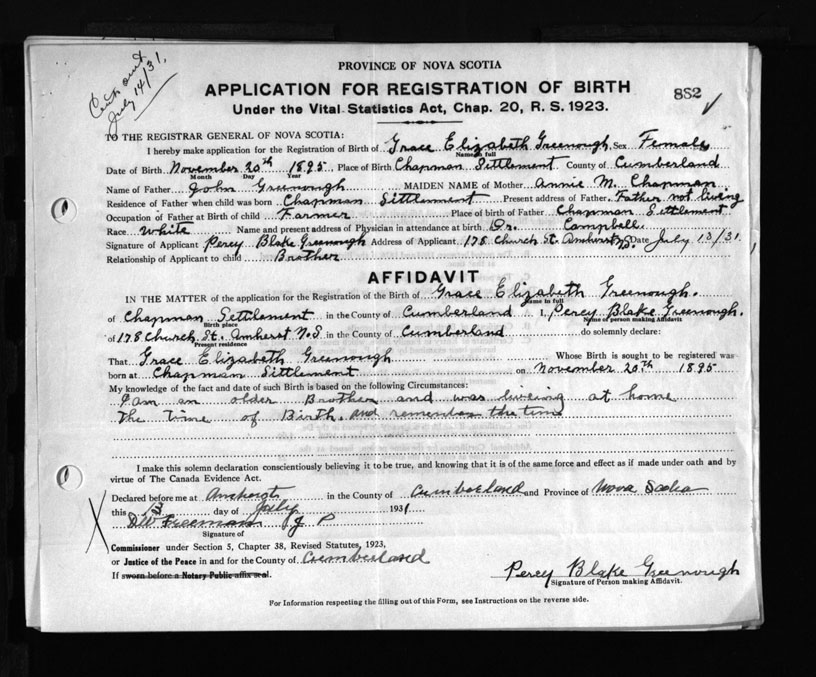 Cert out
July 14/31.
PROVINCE OF NOVA SCOTIA
APPLICATION FOR REGISTRATION OF BIRTH
882
Under the Vital Statistics Act, Chap. 20, R. S. 1923.
TO THE REGISTRAR GENERAL OF NOVA SCOTIA:
I hereby make application for the Registration of Birth of Grace Elizabeth Greenough Sex Female
Name in full
Date of Birth November 20th 1895 Place of Birth Chapman Settlement County of Cumberland
Month Day Year
Name of Father John Greenough MAIDEN NAME of Mother Annie M. Chapman
Residence of Father when child was born Chapman Settlement Present address of Father. Father not living
Occupation of Father at Birth of child Farmer Place of birth of Father Chapman Settlement
Race White Name and present address of Physician in attendance at birth Dr. Campbell
Signature of Applicant Percy Blake Greenough Address of Applicant 178 Church St. Amherst N.S. Date July 13/31
Relationship of Applicant to child Brother
AFFIDAVIT
IN THE MATTER of the application for the Registration of the Birth of Grace Elizabeth Greenough.
Name in full
of Chapman Settlement in the County of Cumberland I, Percy Blake Greenough.
Birth place Name of person making Affidavit
of 178 Church St. Amherst N.S in the County of Cumberland do solemnly declare:
Present residence
That Grace Elizabeth Greenough Whose Birth is sought to be registered was
born at Chapman Settlement on November 20th 1895
My knowledge of the fact and date of such Birth is based on the following Circumstances:
I am an older Brother and was liveing at home
the time of Birth. and remember the time
I make this solemn declaration conscientiously believing it to be true, and knowing that it is of the same force and effect as if made under oath and by
virtue of The Canada Evidence Act.
Declared before me at Amherst in the County of Cumberland and Province of Nova Scotia
this 13 day of July 1931
DW Freeman J P
Signature of
Commissioner under Section 5, Chapter 38, Revised Statutes, 1923,
or Justice of the Peace in and for the County of Cumberland
If sworn before a Notary Public affix seal.
Percy Blake Greenough
Signature of Person making Affidavit.
For Information respeeting the filling out of this Form, see Instructions on the reverse side.